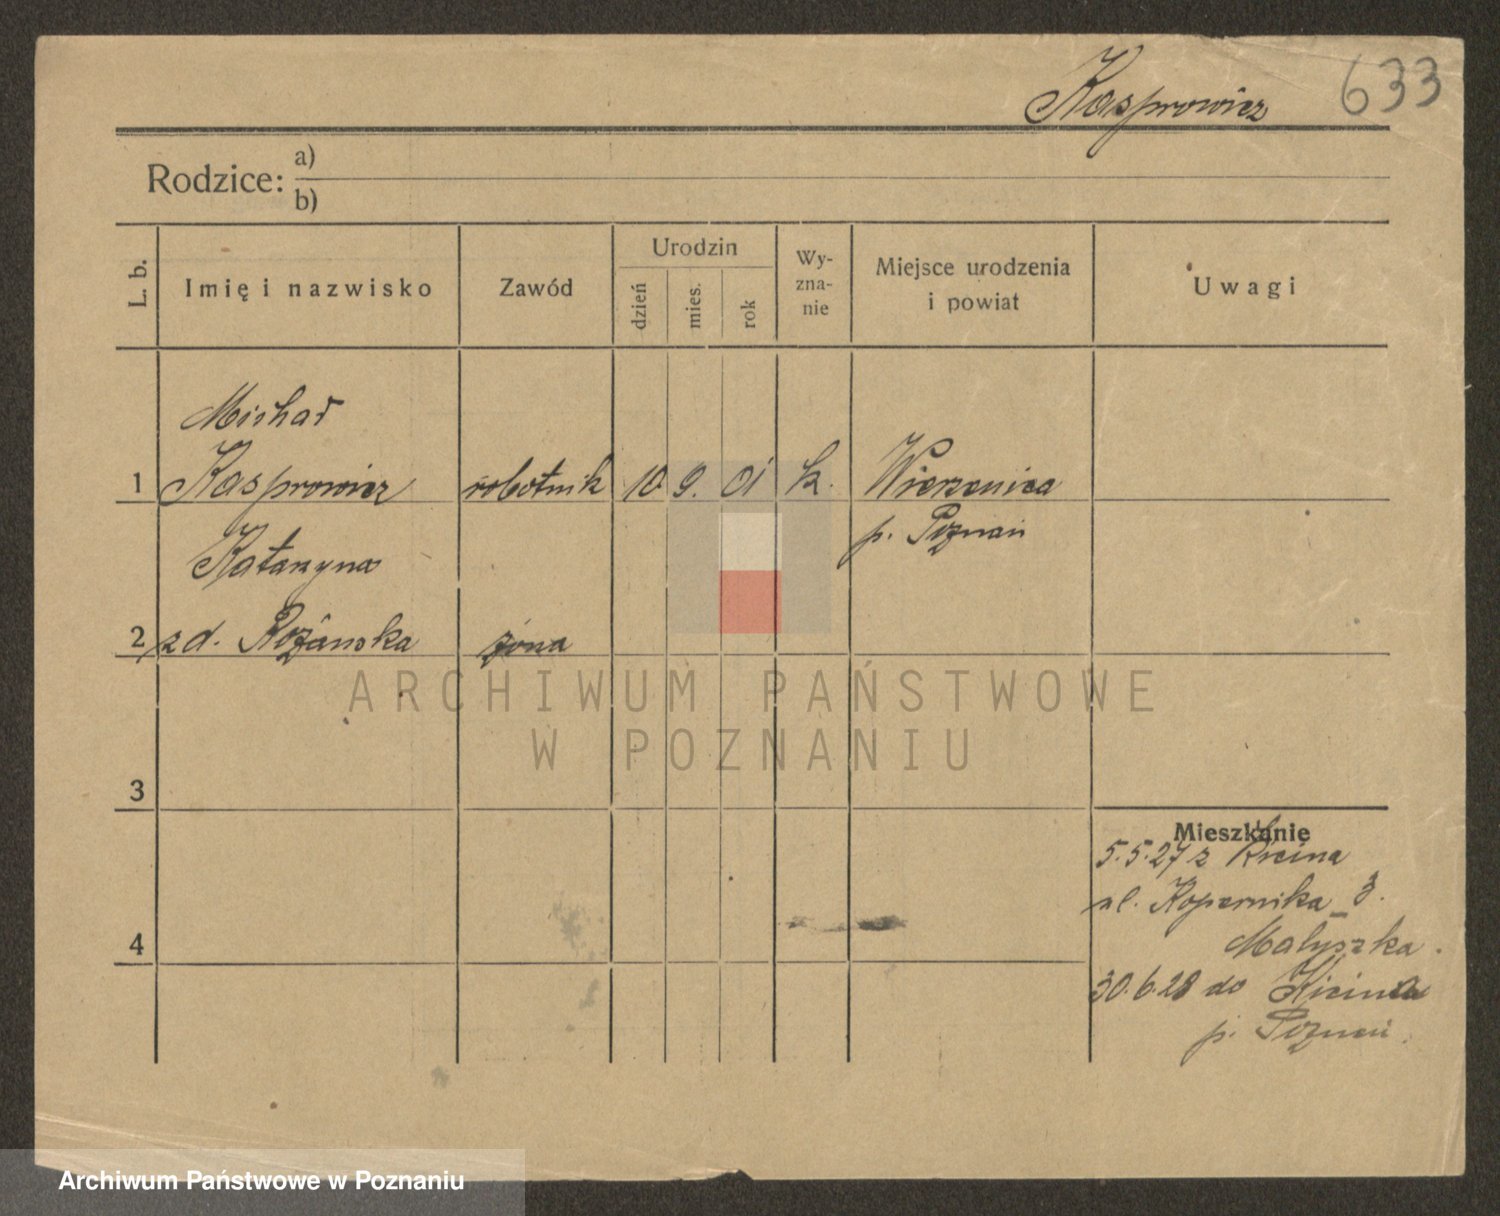 Kasprowicz 633
Rodzice: a)
b)
L. b. Imię i nazwisko Zawód Urodzin dzień mies. rok Wy-zna-nie Miejsce urodzenia i powiat Uwagi
Michał
1 Kasprowicz robotnik 10. 9. 01 k. Wierzenica
p. Poznań
Katarzyna
2 z d. Rożańska żona
ARCHIWUM PAŃSTWOWE
W POZNANIU
3
Mieszkanie
5.5.27 z Kicina
ul. Kopernika 3.
4 Małyszka.
30.6.28 do Kicina
p. Poznań.
Archiwum Państwowe w Poznaniu